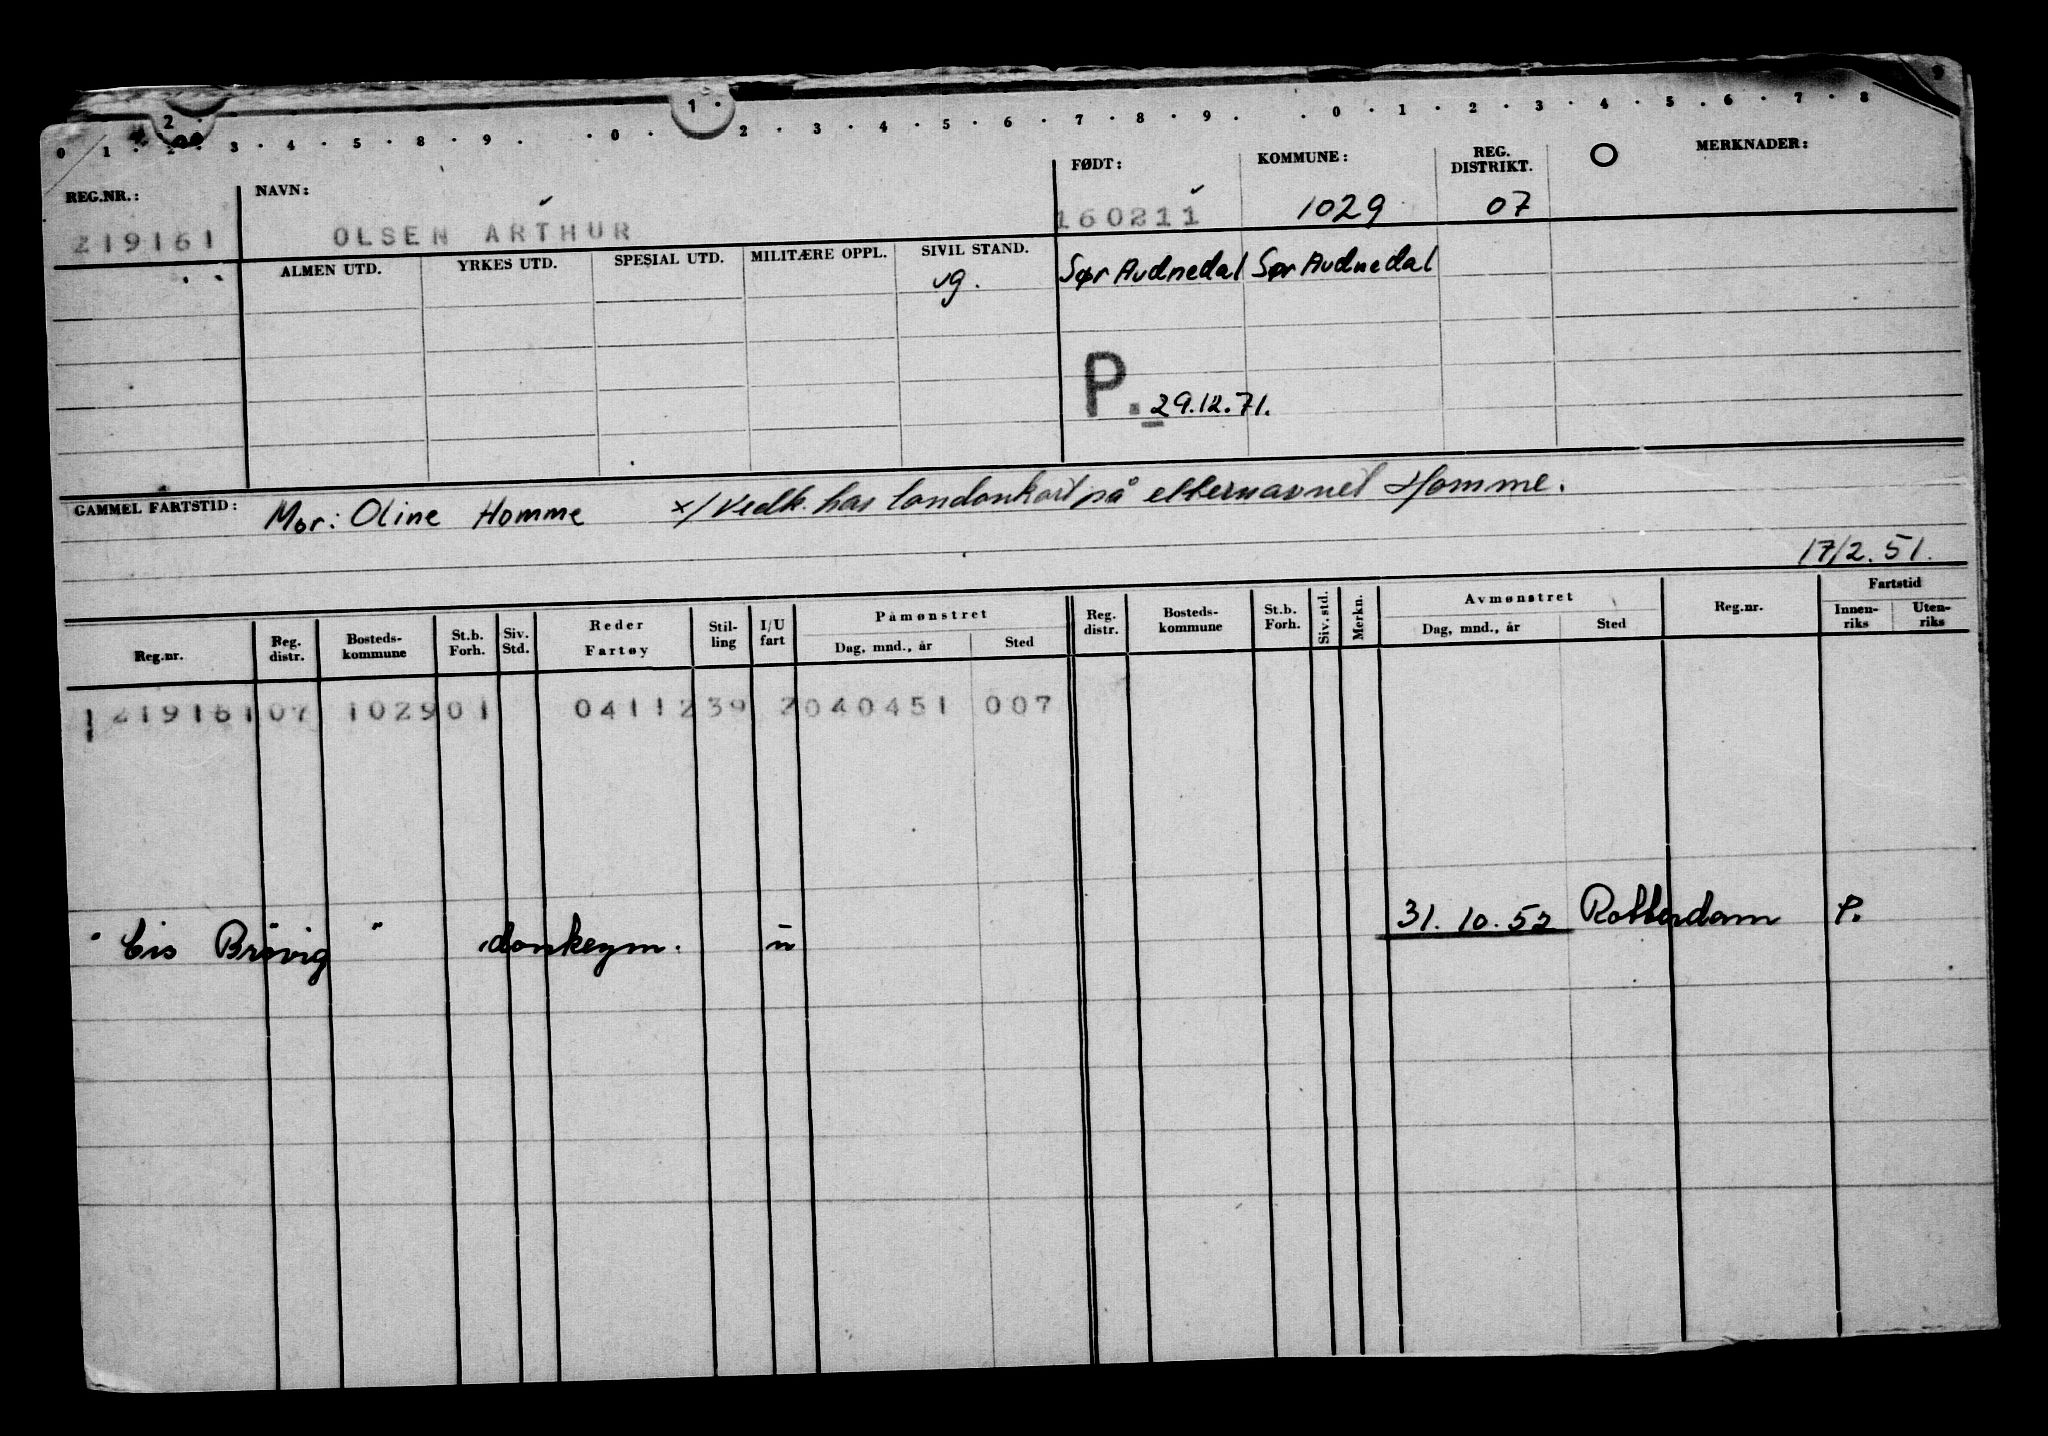 2 1
0 1 2 3 4 5 8 9 0 2 3 4 5 6 7 8 9 0 1 2 3 4 5 6 7 8 9
REG.NR.: NAVN: FØDT: KOMMUNE: REG. DISTRIKT. MERKNADER:
219161 OLSEN ARTHUR 160211 1029 07
ALMEN UTD. YRKES UTD. SPESIAL UTD. MILITÆRE OPPL. SIVIL STAND. Sør Audnedal Sør Audnedal
vg.
P. 29.12.71.
GAMMEL FARTSTID: Mor: Oline Homme x/ Vedk. har londonkort på etternavnet Homme.
17/2.51.
Reg.nr. Reg. distr. Bosteds- kommune St.b. Forh. Siv. Std. Reder Fartøy Stil- ling I/U fart Påmønstret Dag, mnd., år Sted Reg. distr. Bosteds- kommune St.b. Forh. Siv. std. Merkn. Avmønstret Dag, mnd., år Sted Reg.nr. Fartstid Innen- riks Uten- riks
219161 07 1029 01 04112 39 2 040451 007
" Cis Brøvig " donkeym. u 31.10.52 Rotterdam P.